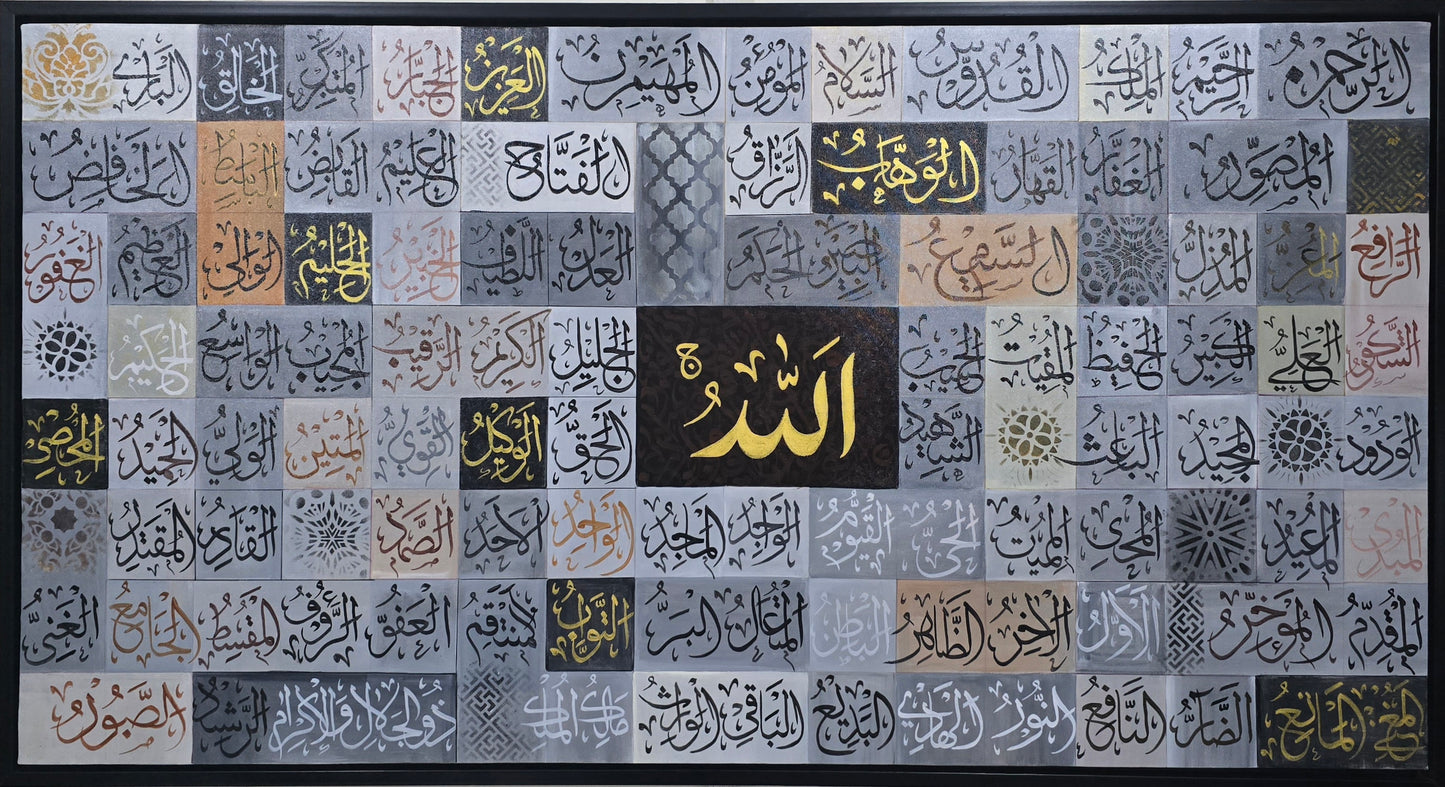 الرحمن الرحيم الملك القدوس السلام المؤمن المهيمن العزيز الجبار المتكبر الخالق البارئ
المصور الغفار القهار الوهاب الرزاق الفتاح العليم القابض الباسط الخافض
الرافع المعز المذل السميع البصير الحكم العدل اللطيف الخبير الحليم الوالي العظيم الغفور
الشكور العلي الكبير الحفيظ المقيت الحسيب الله الجليل الكريم الرقيب المجيب الواسع الحكيم
الودود المجيد الباعث الشهيد الحق الوكيل القوي المتين الولي الحميد المحصي
المبدئ المعيد المحيي المميت الحي القيوم الواجد الماجد الواحد الأحد الصمد القادر المقتدر
المقدم المؤخر الأول الآخر الظاهر الباطن المتعال البر التواب المنتقم العفو الرؤف المقسط الجامع الغني
المغني المانع الضار النافع النور الهادي البديع الباقي الوارث مالك الملك ذوالجلال والإكرام الرشيد الصبور